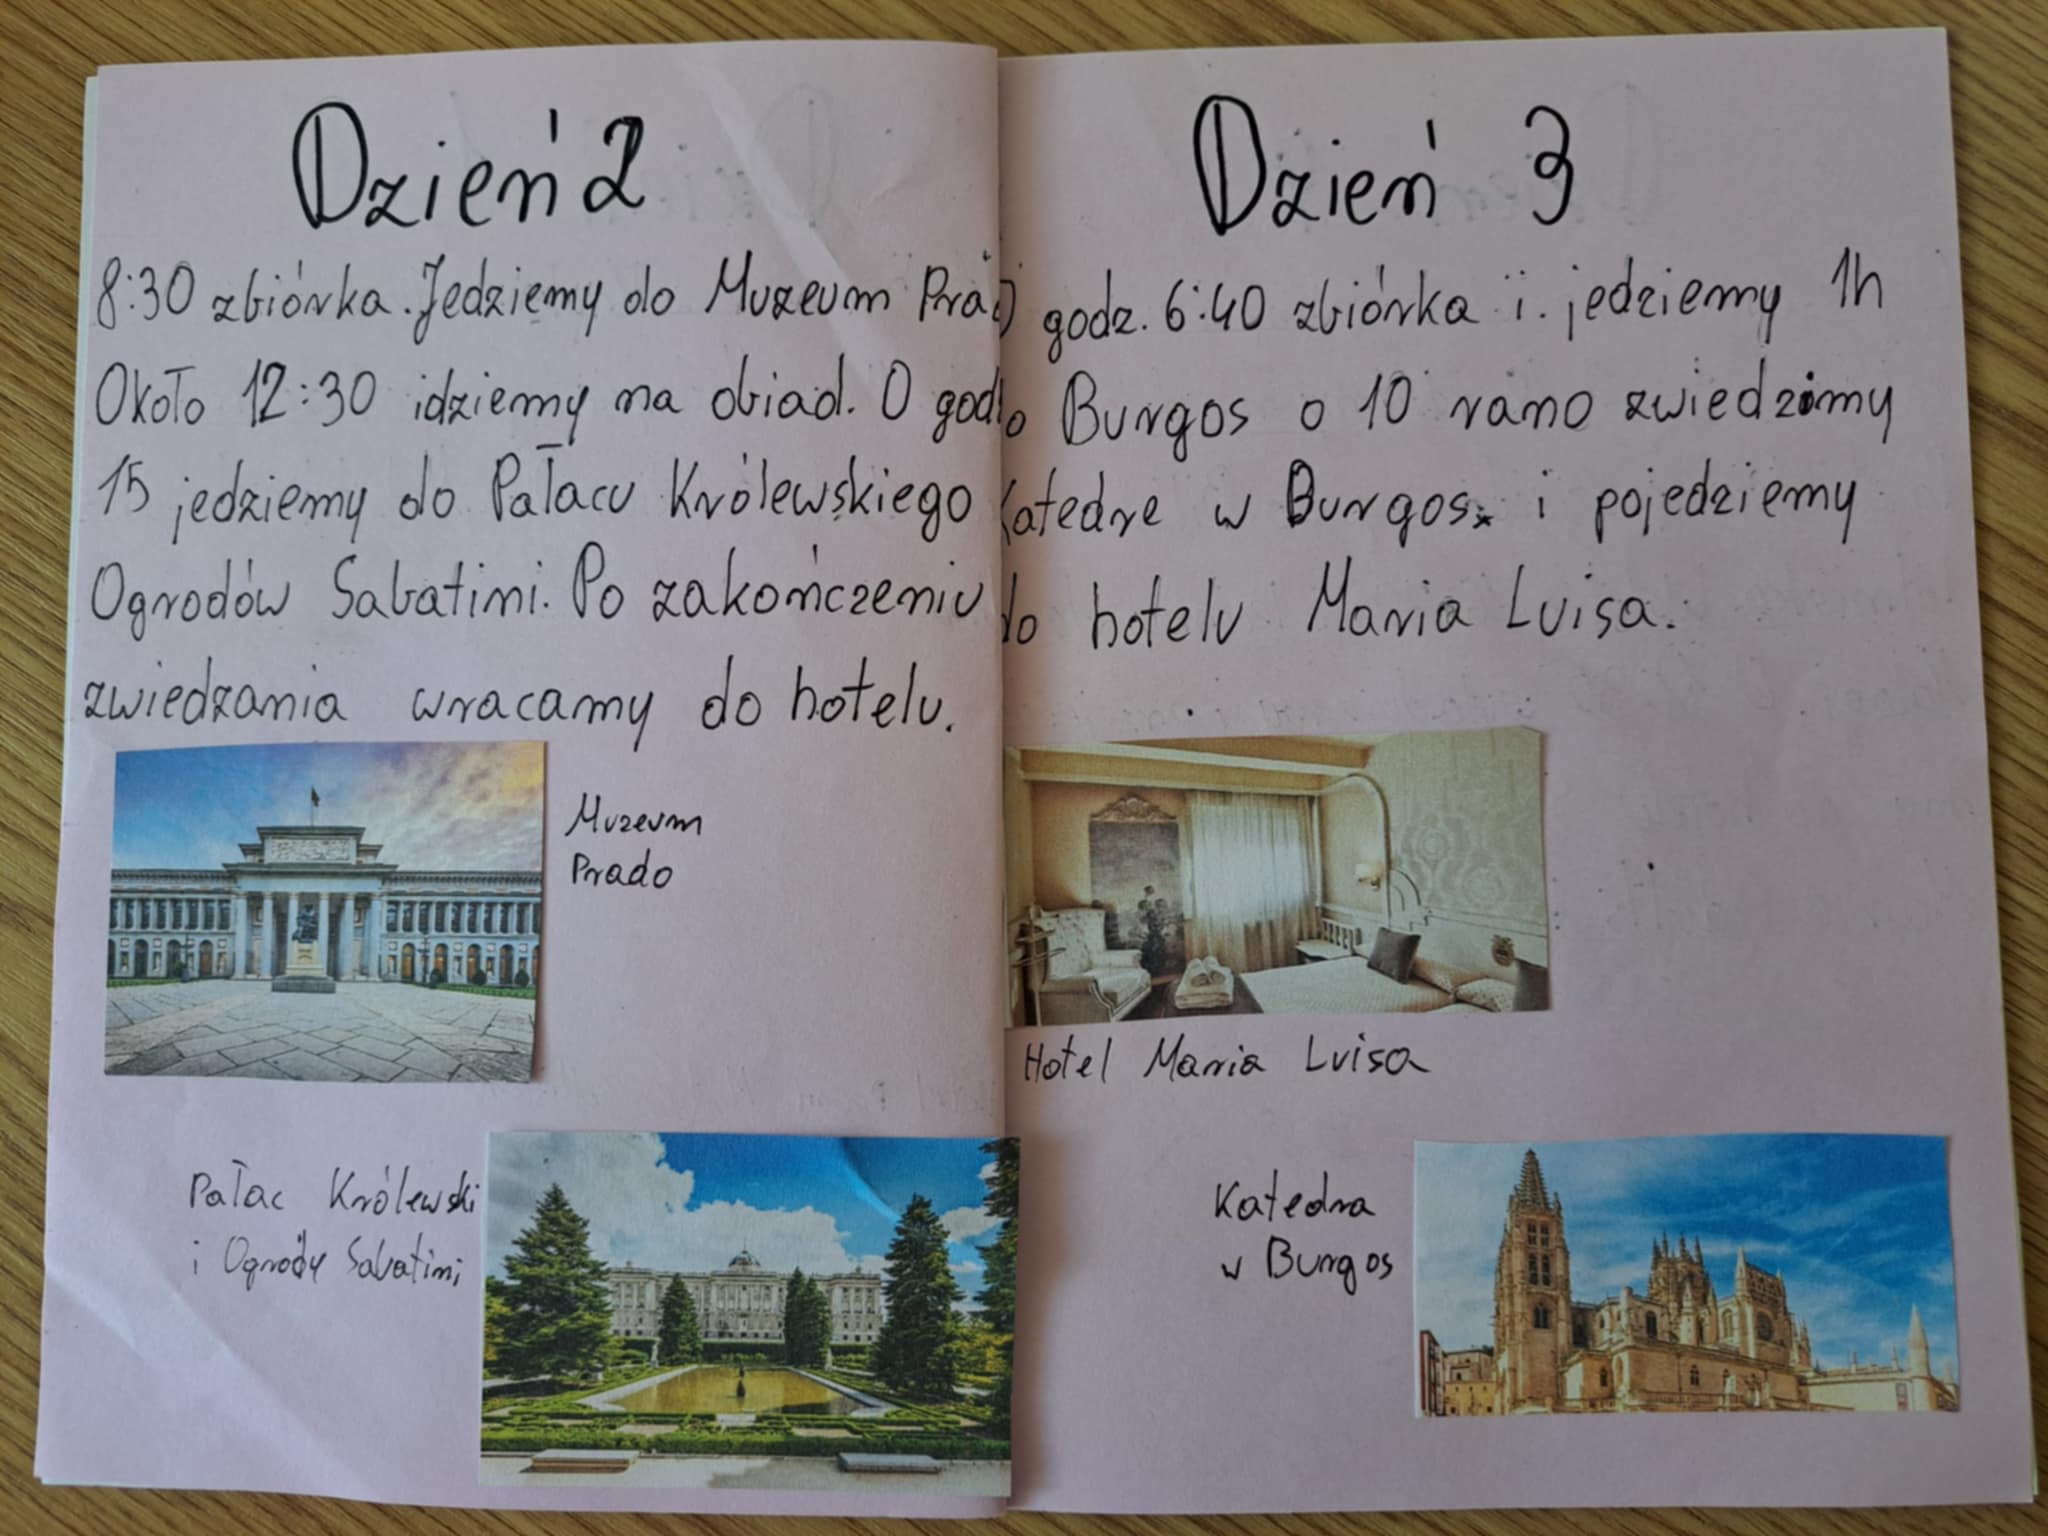 Dzień 2
8:30 zbiórka. Jedziemy do Muzeum
Około 12:30 idziemy na obiad. O
15 jedziemy do Pałacu Królewskiego
Ogrodów Sabatini. Po zakończeniu
zwiedzania wracamy do hotelu.
Muzeum
Prado
Pałac Królewski
i Ogrody Sabatini
Dzień 3
godz. 6:40 zbiórka i. jedziemy 1h
Burgos o 10 rano zwiedzimy
Katedre w Burgos. i pojedziemy
do hotelu Maria Luisa.
Hotel Maria Luisa
Katedra
w Burgos